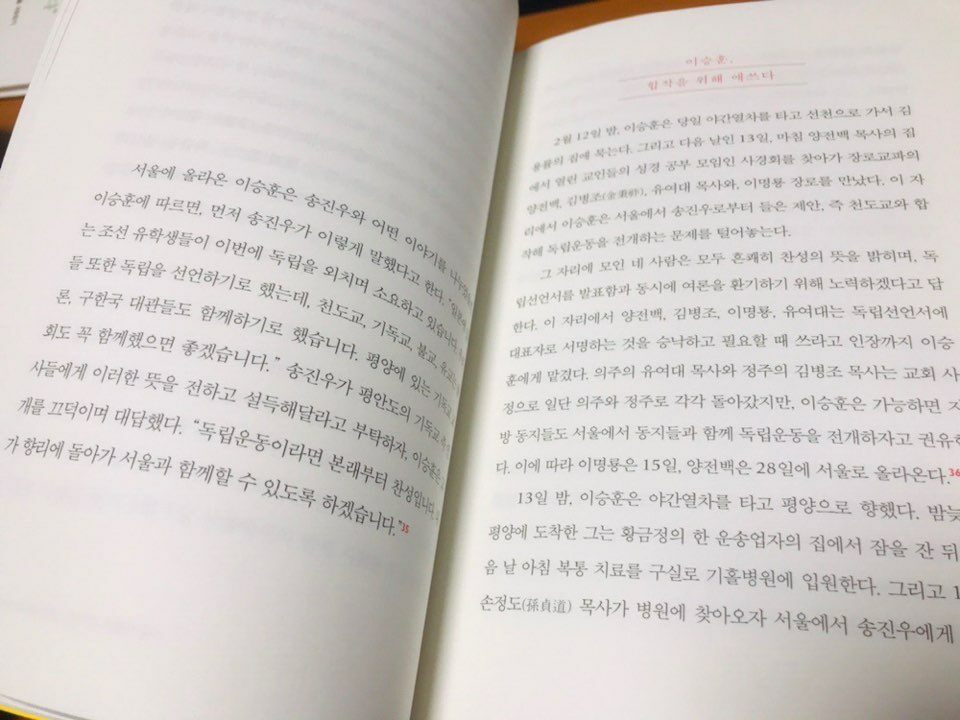 서울에 올라온 이승훈은 송진우와 어떤 이야기를
이승훈에 따르면, 먼저 송진우가 이렇게 말했다고 한다.
는 조선 유학생들이 이번에 독립을 외치며 소요하고 있습니다.
들 또한 독립을 선언하기로 했는데, 천도교, 기독교, 불교,
론, 구한국 대관들도 함께하기로 했습니다. 평양에 있는 기독교
회도 꼭 함께했으면 좋겠습니다.” 송진우가 평안도의 기독교
사들에게 이러한 뜻을 전하고 설득해달라고 부탁하자, 이승훈은
개를 끄덕이며 대답했다. “독립운동이라면 본래부터 찬성입니다.
가 향리에 돌아가 서울과 함께할 수 있도록 하겠습니다.”35
이승훈,
합작을 위해 애쓰다
2월 12일 밤, 이승훈은 당일 야간열차를 타고 선천으로 가서 김
의 집에 묵는다. 그리고 다음 날인 13일, 마침 양전백 목사의 집
에서 열린 교인들의 성경 공부 모임인 사경회를 찾아가 장로교과의
양전백, 김병조(金秉祚), 유여대 목사와, 이명룡 장로를 만났다. 이 자
리에서 이승훈은 서울에서 송진우로부터 들은 제안, 즉 천도교와 합
작해 독립운동을 전개하는 문제를 털어놓는다.
그 자리에 모인 네 사람은 모두 흔쾌히 찬성의 뜻을 밝히며, 독
립선언서를 발표함과 동시에 여론을 환기하기 위해 노력하겠다고 답
한다. 이 자리에서 양전백, 김병조, 이명룡, 유여대는 독립선언서에
대표자로 서명하는 것을 승낙하고 필요할 때 쓰라고 인장까지 이승
훈에게 맡겼다. 의주의 유여대 목사와 정주의 김병조 목사는 교회 사
정으로 일단 의주와 정주로 각각 돌아갔지만, 이승훈은 가능하면 지
방 동지들도 서울에서 동지들과 함께 독립운동을 전개하자고 권유하
다. 이에 따라 이명룡은 15일, 양전백은 28일에 서울로 올라온다.36
13일 밤, 이승훈은 야간열차를 타고 평양으로 향했다. 밤늦
평양에 도착한 그는 황금정의 한 운송업자의 집에서 잠을 잔 뒤
음 날 아침 복통 치료를 구실로 기홀병원에 입원한다. 그리고 1
손정도(孫貞道) 목사가 병원에 찾아오자 서울에서 송진우에게